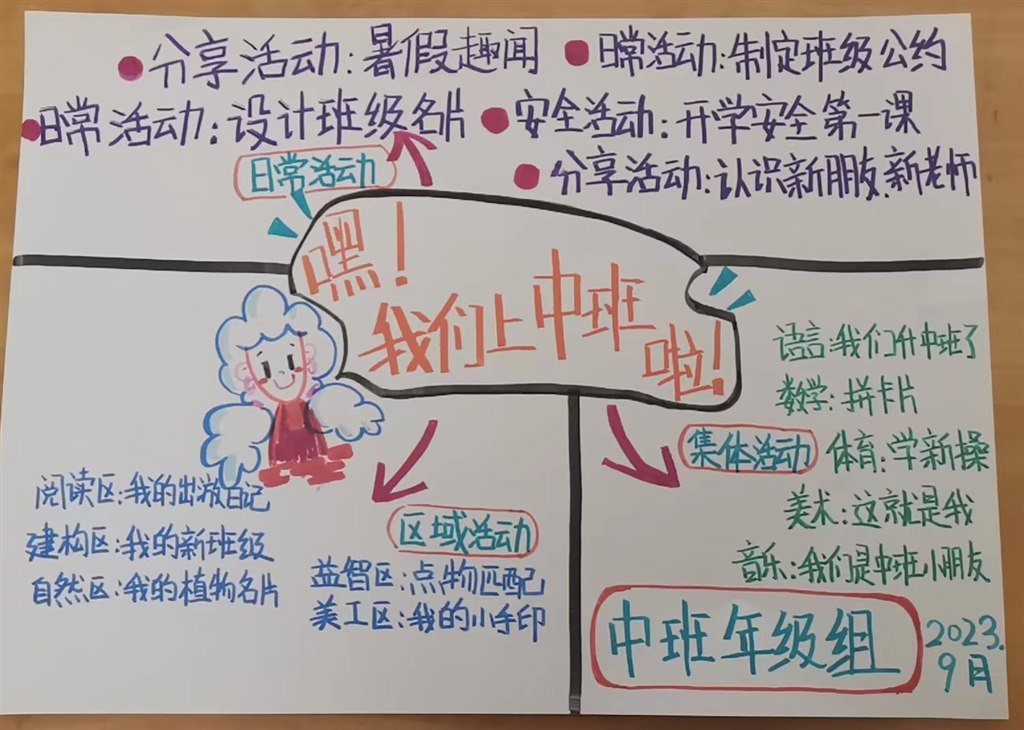 分享活动:暑假趣闻
日常活动:制定班级公约
日常活动:设计班级名片
安全活动:开学安全第一课
分享活动:认识新朋友、新老师
日常活动
嘿!
我们上中班啦!
语言:我们升中班了
数学:拼卡片
集体活动
体育:学新操
美术:这就是我
音乐:我们是中班小朋友
阅读区:我的出游日记
建构区:我的新班级
自然区:我的植物名片
区域活动
益智区:点物匹配
美工区:我的小手印
中班年级组
2023.
9月